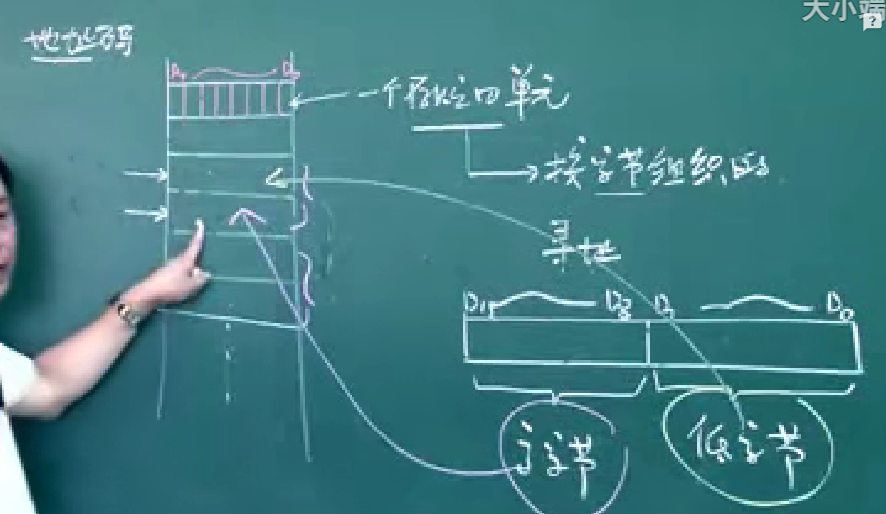 大小端
地址
D₇ D₀
一个存储单元
按字节组织的
寻址
D₁₅ D₈ D₇ D₀
高字节 低字节